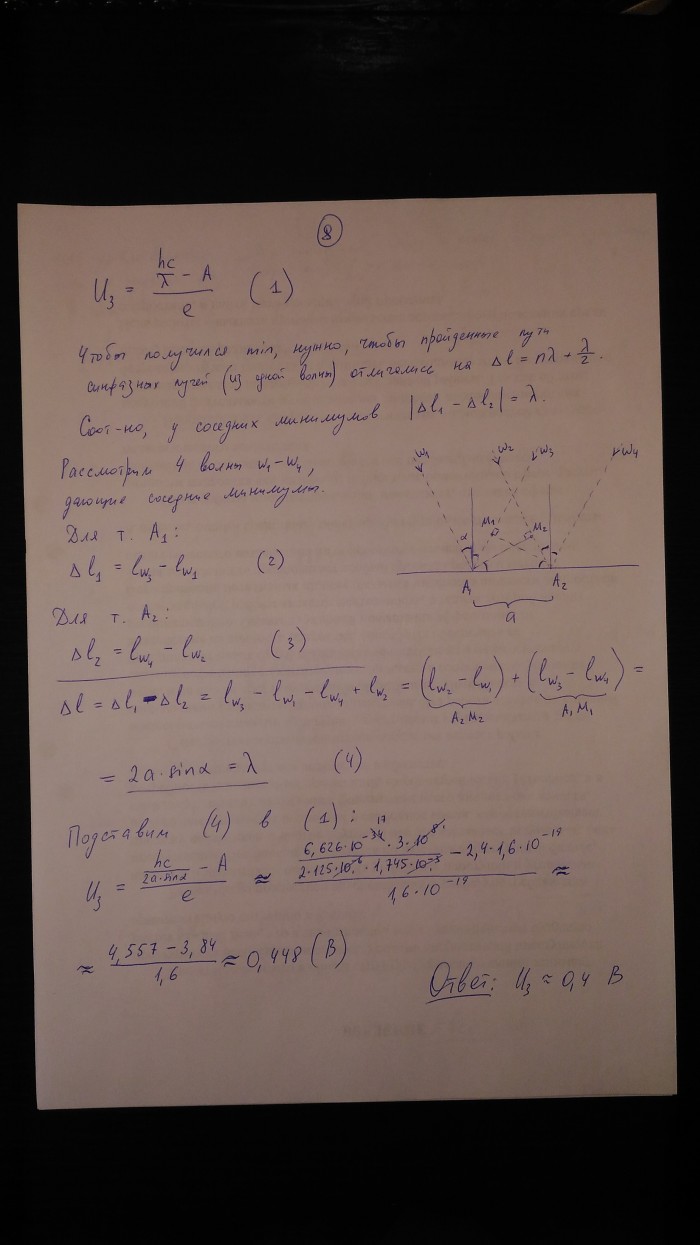 8
U₃ = (hc/λ - A)/e (1)
Чтобы получился min, нужно, чтобы пройденные пути
синфазных лучей (из одной волны) отличались на Δl = nλ + λ/2.
Соот-но, у соседних минимумов |Δl₁ - Δl₂| = λ.
Рассмотрим 4 волны w₁-w₄,
дающие соседние минимумы.
Для т. A₁:
Δl₁ = l_w₃ - l_w₁ (2)
Для т. A₂:
Δl₂ = l_w₄ - l_w₂ (3)
w₁ w₂ w₃ w₄
α M₁ M₂
A₁ A₂
a
Δl = Δl₁ - Δl₂ = l_w₃ - l_w₁ - l_w₄ + l_w₂ = (l_w₂ - l_w₁) + (l_w₃ - l_w₄) =
A₂M₂ A₁M₁
= 2a·sinα = λ (4)
Подставим (4) в (1):
17
U₃ = (hc/(2a·sinα) - A)/e ≈ ((6,626·10⁻³⁴·3·10⁸)/(2·125·10⁻⁶·1,745·10⁻³) - 2,4·1,6·10⁻¹⁹)/(1,6·10⁻¹⁹) ≈
≈ (4,557 - 3,84)/1,6 ≈ 0,448 (В)
Ответ: U₃ ≈ 0,4 В